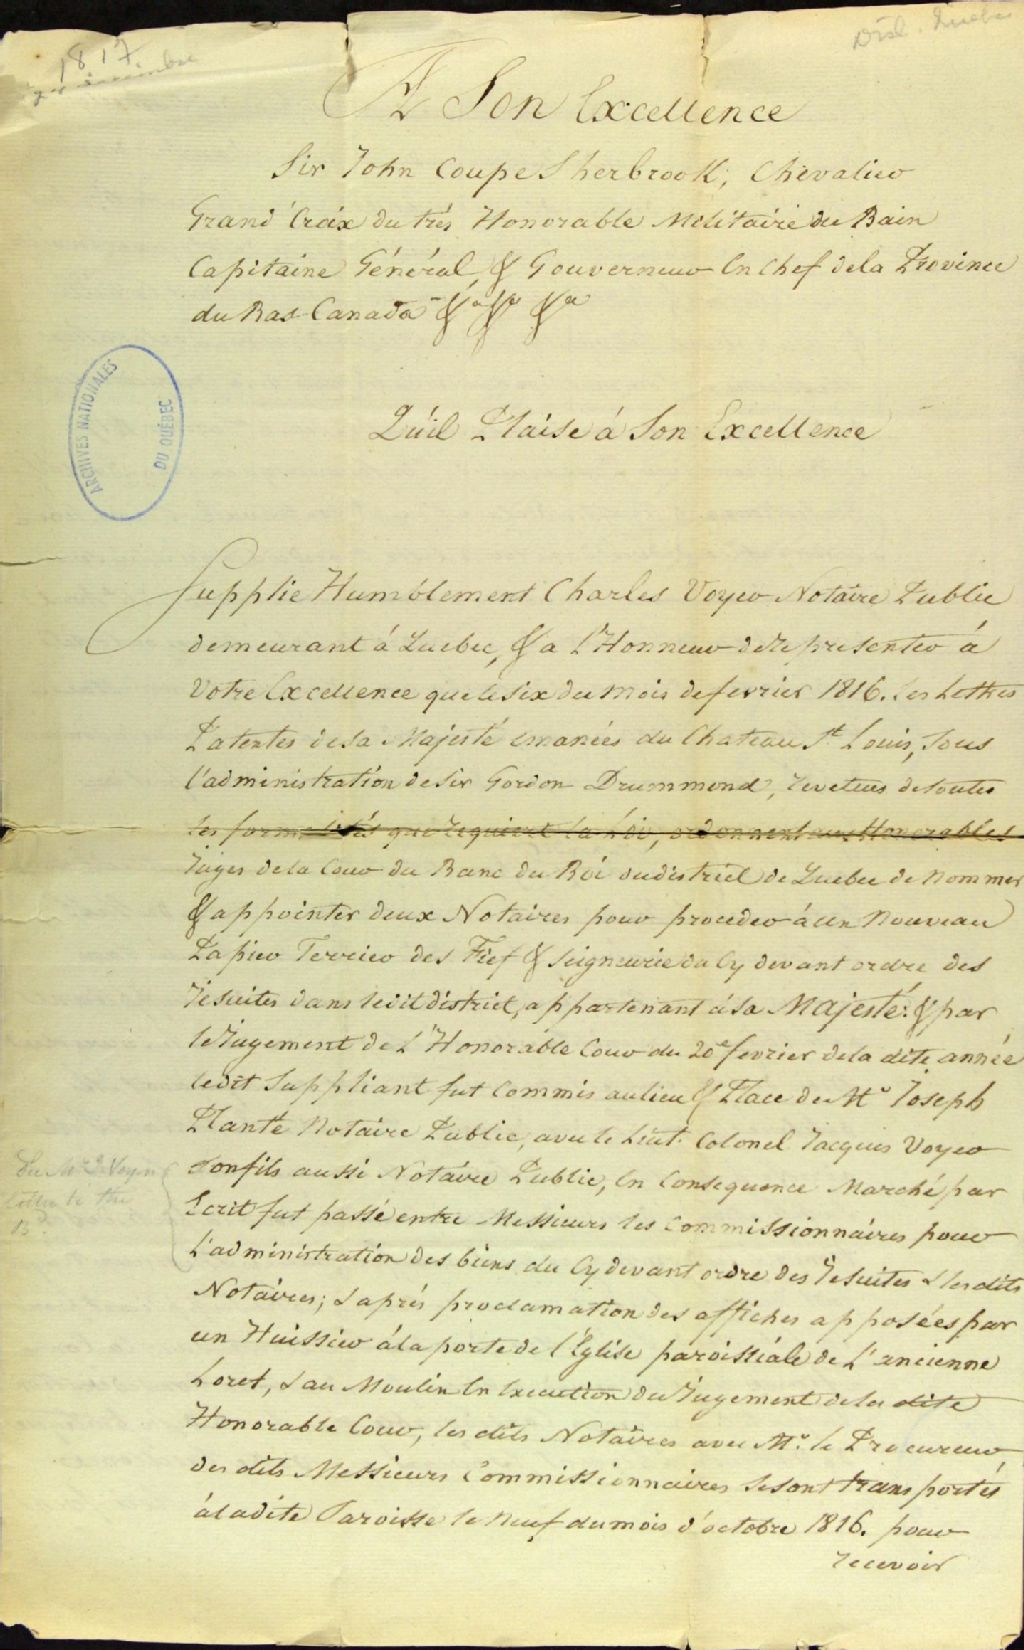 1817
Dist. Quebec
A Son Excellence
Sir John Coupe Sherbrook, Chevalier
Grand Croix du trés Honorable Militaire du Bain
Capitaine Général, & Gouverneur En Chef de la Province
du Bas-Canada &a &a &a
ARCHIVES NATIONALES
DU QUÉBEC
Qu'il Plaise á Son Excellence
Supplie Humblement Charles Voyer Notaire Public
demeurant á Quebec, & a l'Honneur de Representer á
Votre Excellence que le Six du mois de fevrier 1816. Les Lettres
Patentes de sa Majesté emanées du Chateau St. Louis, Sous
l'administration de Sir Gordon Drummond, revetues de toutes
les formalités que requiert la Loi, ordonnent aux Honorables
Juges de la Cour du Banc du Roi du district de Quebec de nommer
& appointer deux Notaires pour proceder á un Nouveau
Papier Terrier des Fief & Seigneurie du Cy devant ordre des
Jesuites dans ledit district, appartenant á Sa Majesté: & par
le Jugement de L'Honorable Cour du 20e fevrier de la dite année
ledit Suppliant fut Commis au lieu & Place de Mr Joseph
Planté Notaire Public, avec le Lieut. Colonel Jacques Voyer
Son fils aussi Notaire Public, En Consequence Marché par
See Mr. Voyer's
letter to the
Ecrit fut passé entre Messieurs les Commissionnaires pour
L'administration des biens du Cy devant ordre des Jesuites & les dits
Notaires; & aprés proclamation des affiches apposées par
un Huissier á la porte de l'Eglise paroissiale de L'ancienne
Loret, & au Moulin En Execution du Jugement de la dite
Honorable Cour, les dits Notaires avec Mr. le Procureur
des dits Messieurs Commissionnaires se sont transportés
á la dite Paroisse le Neuf du mois d'octobre 1816. pour
recevoir